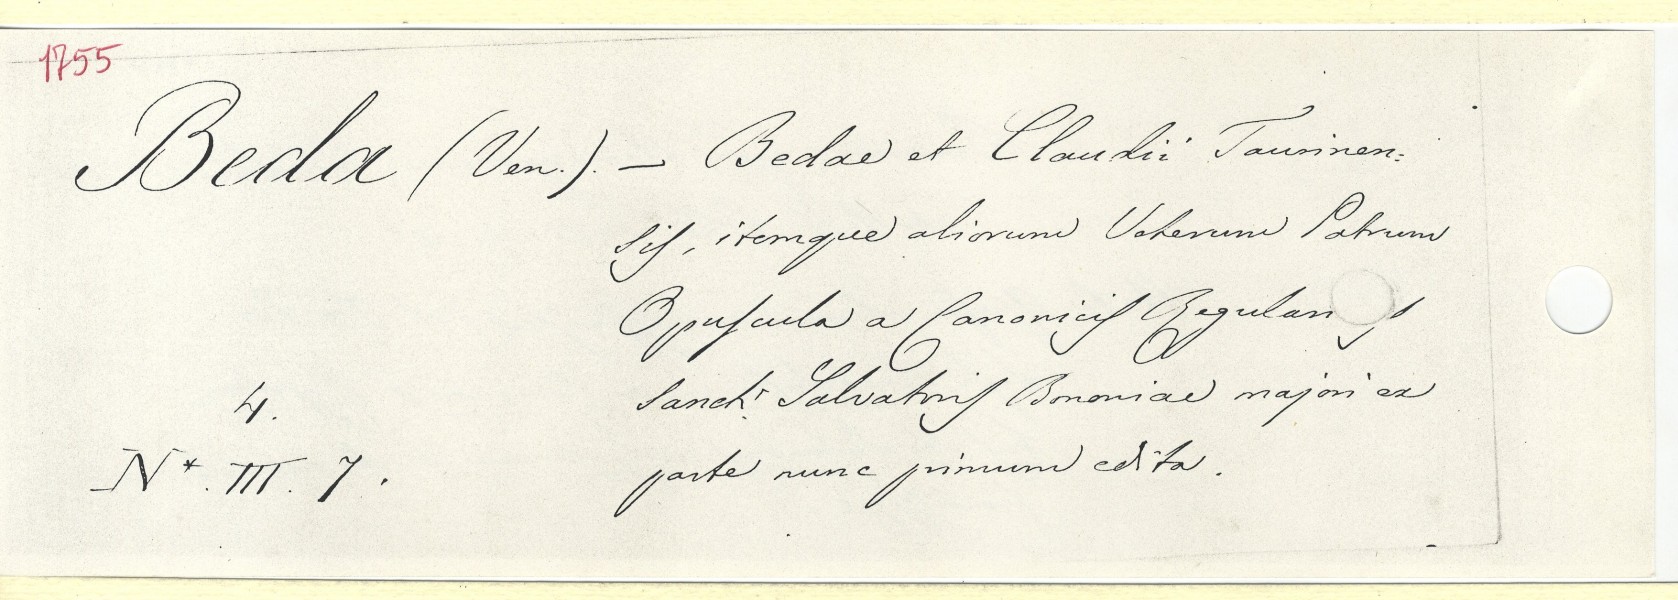 1755
Beda (Ven.). — Bedae et Claudii Taurinen:
sis, itemque aliorum Veterum Patrum
Opuscula a Canonicis Regularis
sancti Salvatoris Bononiae majori ex
parte nunc primum edita.
4.
N*. III. 7.